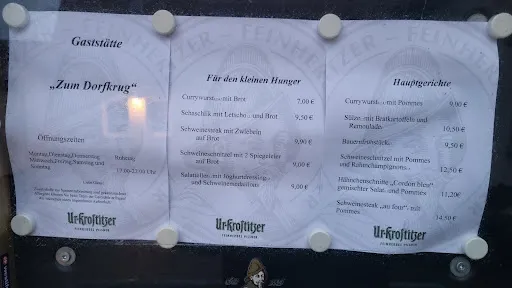 Gaststätte
„Zum Dorfkrug“
Öffnungszeiten
Montag, Dienstag, Donnerstag Ruhetag
Mittwoch, Freitag, Samstag und
Sonntag 17:00-23:00 Uhr
Ur-Krostitzer
FEINHERBES PILSNER
Für den kleinen Hunger
Currywurst mit Brot 7,00 €
Schaschlik mit Letscho und Brot 9,50 €
Schweinesteak mit Zwiebeln
auf Brot 9,90 €
Schweineschnitzel mit 2 Spiegeleier
auf Brot 9,00 €
Salatteller mit Joghurtdressing
und Schweinemedaillons 9,00 €
Ur-Krostitzer
FEINHERBES PILSNER
Hauptgerichte
Currywurst mit Pommes 9,00 €
Sülze mit Bratkartoffeln und
Remoulade 10,50 €
Bauernfrühstück 9,50 €
Schweineschnitzel mit Pommes
und Rahmchampignons 12,50 €
Hähnchenschnitte „Cordon bleu“
gemischter Salat und Pommes 11,20€
Schweinesteak „au four“ mit
Pommes 14,50 €
Ur-Krostitzer
FEINHERBES PILSNER